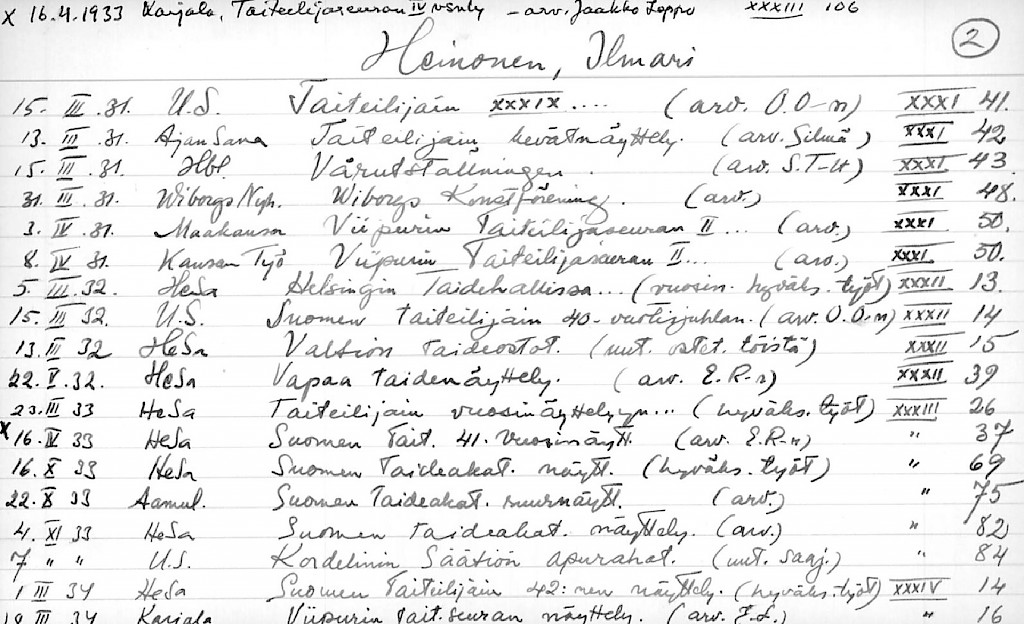 x 16.4.1933 Karjala, Taiteilijaseuran IV vsnäy - arv. Jaakko Leppo XXXIII 106
2
Heinonen, Ilmari
15. III .31. U.S. Taiteilijain XXXIX .... (arv. O.O-n) XXXI 41.
13. III .31. Ajan Sana Taiteilijain kevätnäyttely. (arv. Silmä) XXXI 42
15. III .31. Hbl. Vårutställningen. (arv. S.T-lt) XXXI 43
31. III .31. Wiborgs Nyh. Wiborgs Konstförening. (arv.) XXXI 48.
3. IV .31. Maakansa Viipurin Taiteilijaseuran II ... (arv.) XXXI 50.
8. IV 31. Kansan Työ Viipurin Taiteilijaseuran II... (arv.) XXXI 50.
5. III .32. HeSa Helsingin Taidehallissa... (vuosin. hyväks. työt) XXXII 13.
15. III 32. U.S. Suomen Taiteilijain 40-vuotisjuhlan. (arv. O.O.n) XXXII 14
13. III 32 HeSa Valtion taideostot. (uut. ostet. töistä) XXXII 15
22. V .32. HeSa Vapaa taidenäyttely. (arv. E.R-r) XXXII 39
23. III 33 HeSa Taiteilijain vuosinäyttelyyn... (hyväks. työt) XXXIII 26
x 16. IV 33 HeSa Suomen Tait. 41. vuosinäytt. (arv. E.R-r) " 37
16. X 33 HeSa Suomen Taideakat. näytt. (hyväks. työt) " 69
22. X 33 Aamul. Suomen Taideakat. suurnäytt. (arv.) " 75
4. XI 33 HeSa Suomen taideakat. näyttely. (arv.) " 82
7 " " U.S. Kordelinin Säätiön apurahat. (uut. saaj.) " 84
1 III 34 HeSa Suomen Taiteilijain 42:nen näyttely. (hyväks. työt) XXXIV 14
III 34 Karjala Viipurin Tait.seuran näyttely. (arv. J.L.) " 16